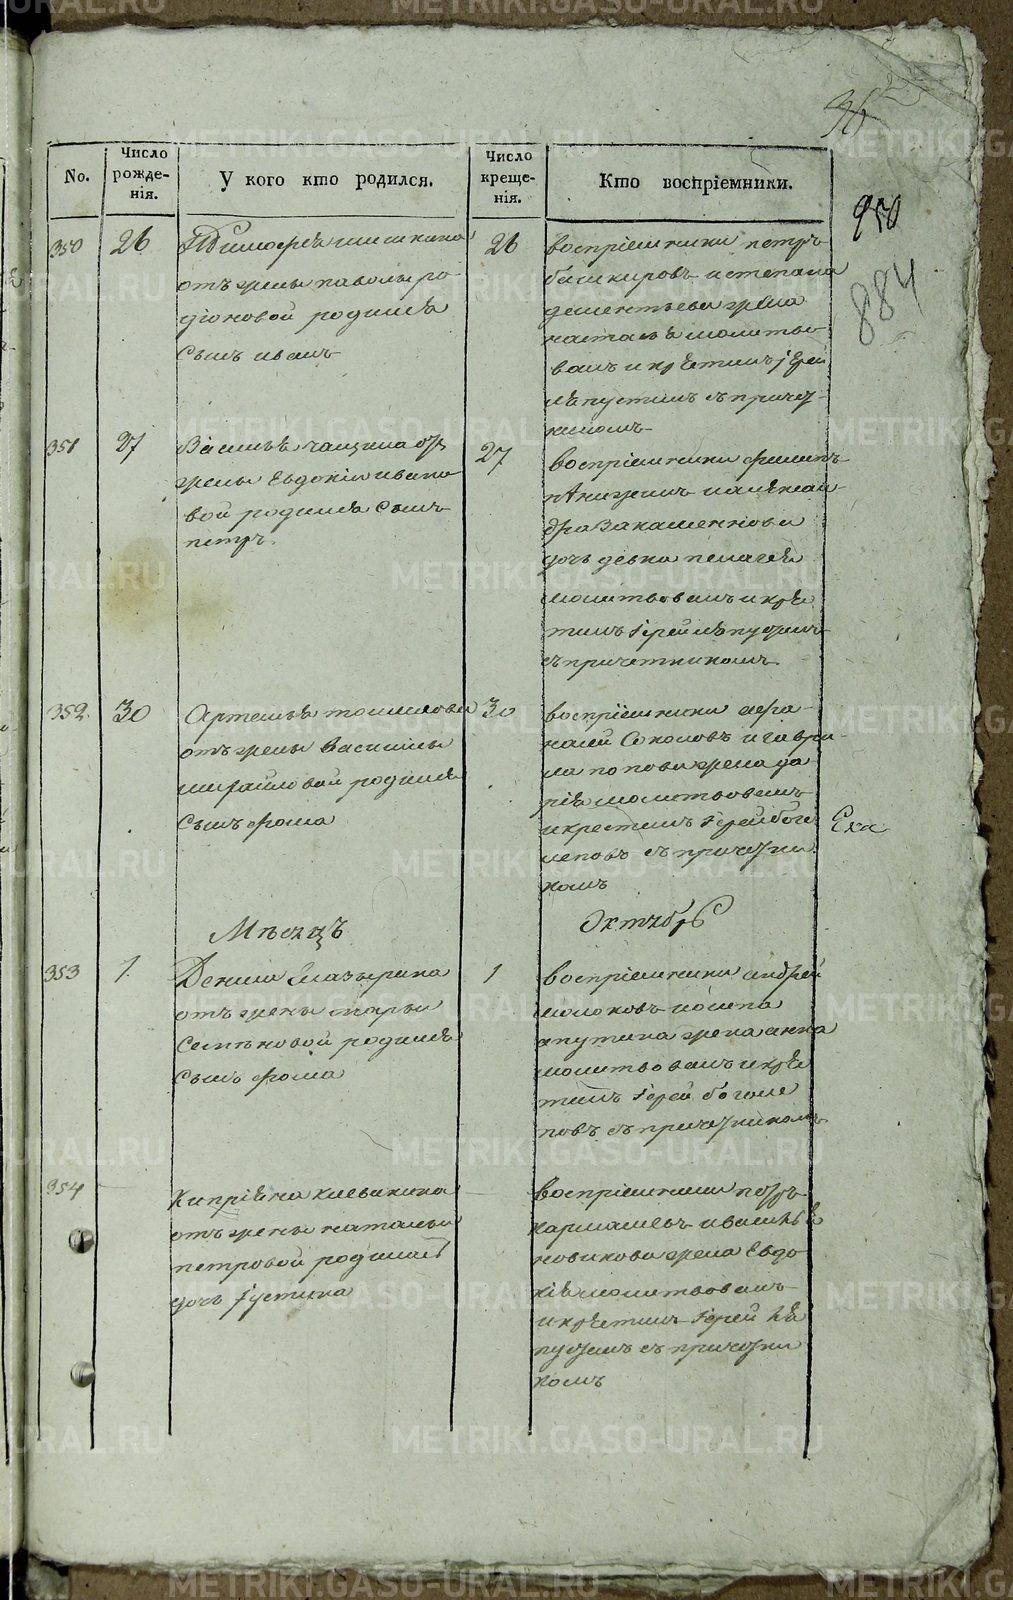 No.
Число рожде-нія.
У кого кто родился.
Число креще-нія.
Кто воспріемники.
950
884
350
26
Тимофея шишкина
отъ жены павлы ро
діоновой родился
сынъ иванъ
26
воспріемники петръ
башкировъ и степана
дементьева жена
настасья молитво
валъ и крестилъ іерей
лепустинъ съ причет
никомъ
351
27
Василья чащина отъ
жены Евдокіи ивано
вой родился сынъ
петръ.
27
воспріемники филипъ
дочь девка пелагея
молитвовалъ и кре
тилъ іерей лепустинъ
съ причетникомъ.
352.
30
Артемья томилова
отъ жены василисы
михайловой родился
сынъ фома
30
воспріемники афа
насей Соколовъ и гаври
ла попова жена да
рія молитвовалъ
и крестилъ іерей бого
леповъ съ причетни
комъ
Ека
Месяцъ
Октябрь
353
1.
Дениса Глазырина
отъ жены марьи
Семеновой родился
сынъ фома
1
воспріемники андрей
молоковъ и осипа
жена анна
молитвовалъ и кре
тилъ іерей боголе
повъ съ причетникомъ
354
Кипріяна клевакина
отъ жены натальи
петровой родилась
дочь іустина
воспріемники петръ
кармашевъ и василья
новикова жена Евдо
кія молитвовалъ
и крестилъ іерей ле
пустинъ съ причетни
комъ
METRIKI.GASO-URAL.RU